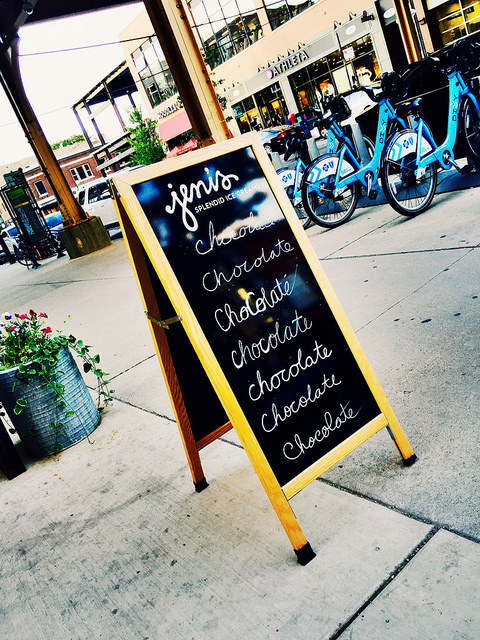 ATHLETA
jeni's
SPLENDID ICE CREAMS
chocolate
chocolate
Chocolate
chocolate
chocolate
Chocolate
Chocolate